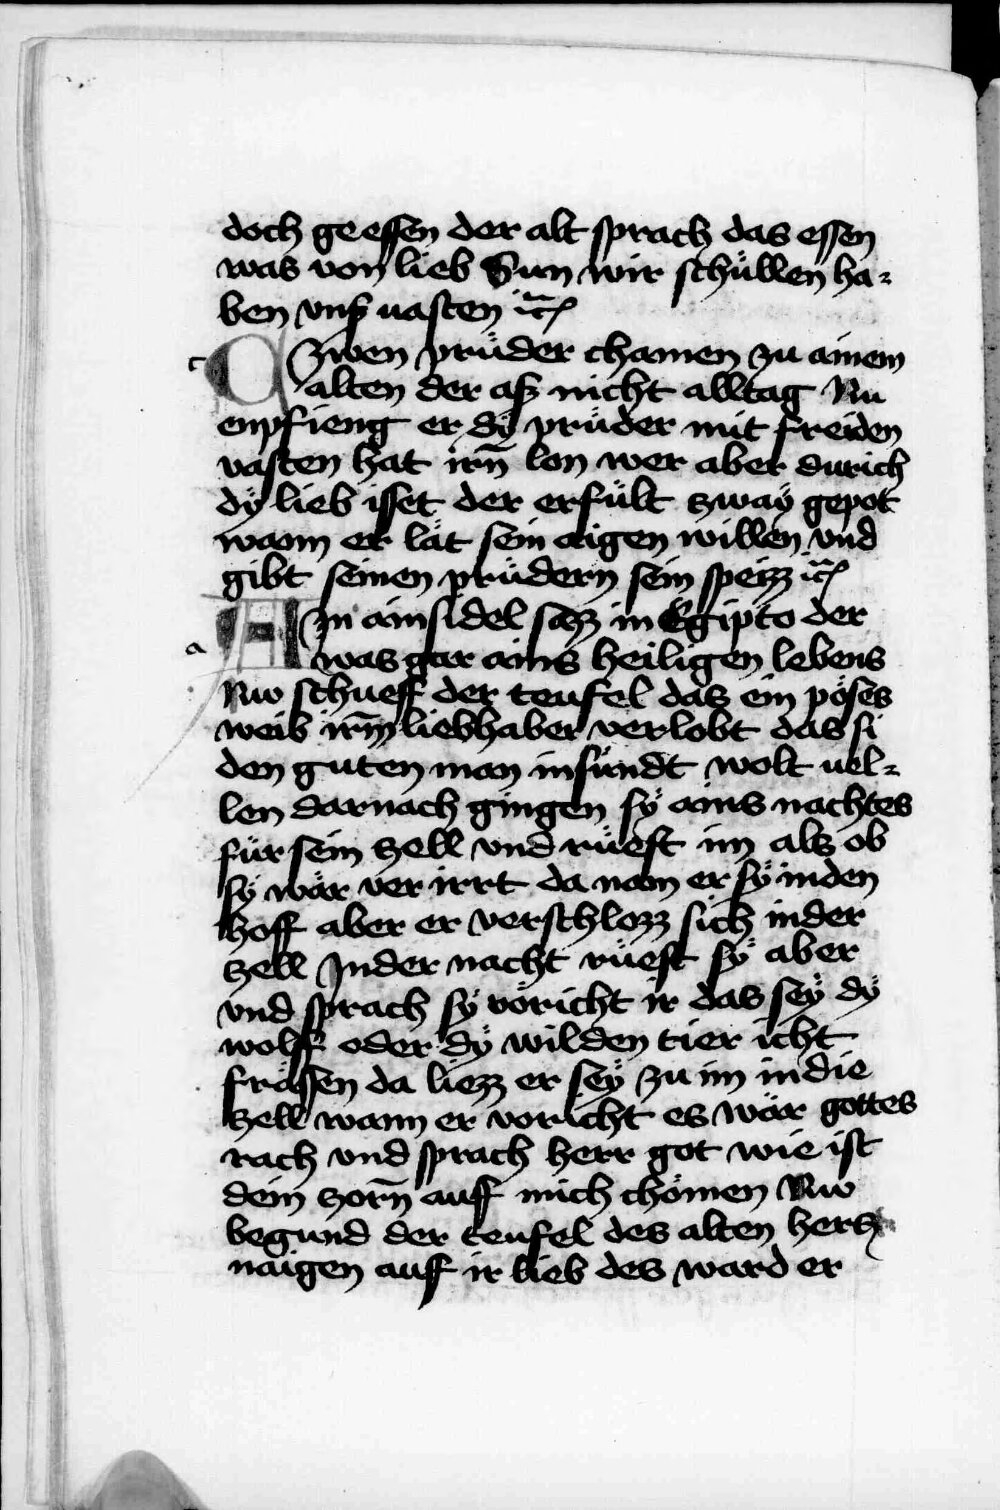 doch geessen der alt sprach das essen
was von lieb Sun wir schüllen ha-
ben vns vasten ꝛc
c Zwen prüder chamen zu ainem
alten der aß nicht alltag Nu
enpfieng er dÿ prüder mit freiden
vasten hat irn̄ lon wer aber durich
dÿ lieb isset der erfült zwaÿ gepot
wann er lät sein aigen willen vnd
gibt seinen prüdern sein speizz ꝛc
a Ain ainsidel saz in Egipto der
was gar ains heiligen lebens
Nw schueff der teufel das ein pöses
weib irm̄ liebhaber verlobt das si
den guten man in sündt wolt vel-
len darnach gingen sÿ ains nachtes
für sein zell vnd rüeft im alz ob
sÿ wär ver irrt da nam er sÿ in den
hoff aber er verschlozz sich in der
zell In der nacht rüeft sÿ aber
vnd sprach sÿ vöricht ir das seÿ dÿ
wolf oder dÿ wilden tier icht
frässen da liezz er seÿ zu im in die
zell wann er voricht es wär gottes
rach vnd sprach herr got wie ist
dein zorn̄ auff mich chömen Nw
begund der teufel des alten hercz
naigen auff ir lieb des ward er